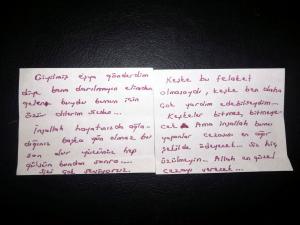 Giyilmiş eşya gönderdim
diye bana darılmayın elimden
gelen buydu bunun için
özür dilerim sizden...
İnşallah hayatınızda ağla-
dığınız başka gün olmaz bu
son olur yüzünüz hep
gülsün bundan sonra....
Sizi çok seviyoruz.
Keşke bu felaket
olmasaydı, keşke ben daha
çok yardım edebilseydim...
Keşkeler bitmez, bitmeye-
cek Ama inşallah bunu
yapanlar cezasını en ağır
şekilde ödeyecek... Siz hiç
üzülmeyin. Allah en güzel
cezayı verecek...